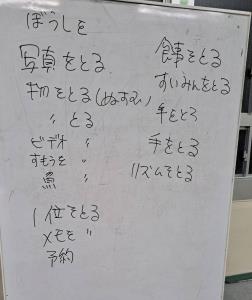 ぼうしを
写真をとる
物をとる(ぬすむ)
〃 とる
ビデオ 〃
すもうを 〃
魚 〃
1位をとる
メモを 〃
予約
食事をとる
すいみんをとる
手をとる
手をとる
リズムをとる